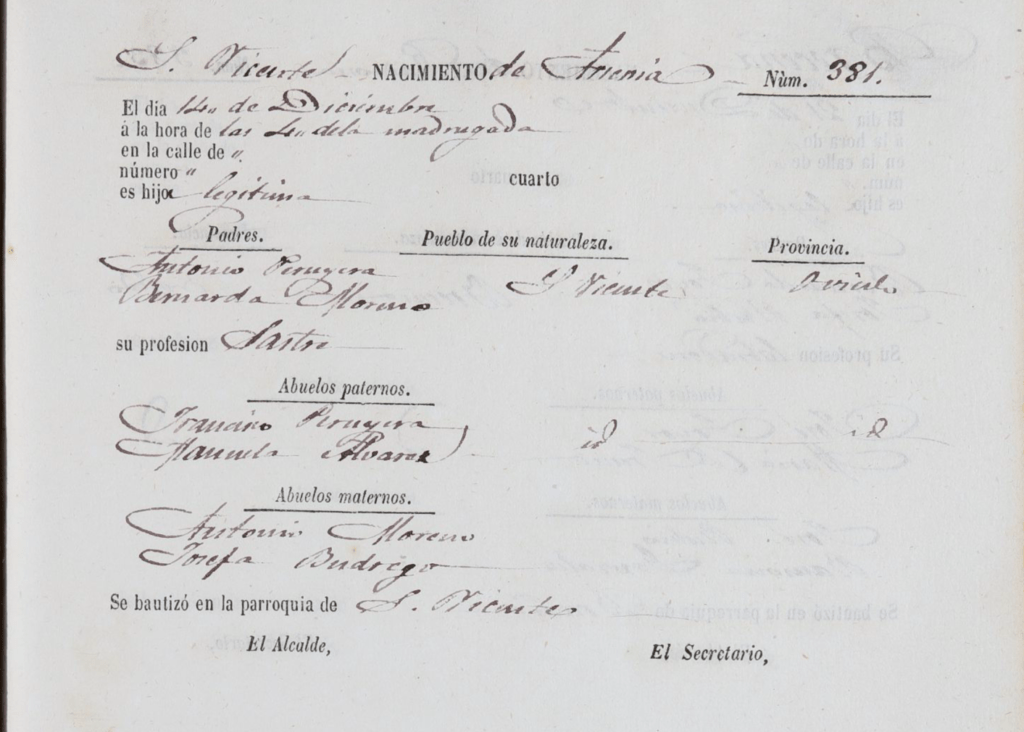 S. Vicente NACIMIENTO de Núm. 381.
El dia 14 de Diciembre
á la hora de las 4 de la madrugada
en la calle de "
número " cuarto
es hija legitima
Padres. Pueblo de su naturaleza. Provincia.
Antonio Peruyera
Bernarda Moreno S. Vicente Oviedo
su profesion Sastre
Abuelos paternos.
Francisco Peruyera
Manuela Alvarez id id
Abuelos maternos.
Antonio Moreno
Josefa
Se bautizó en la parroquia de S. Vicente
El Alcalde, El Secretario,